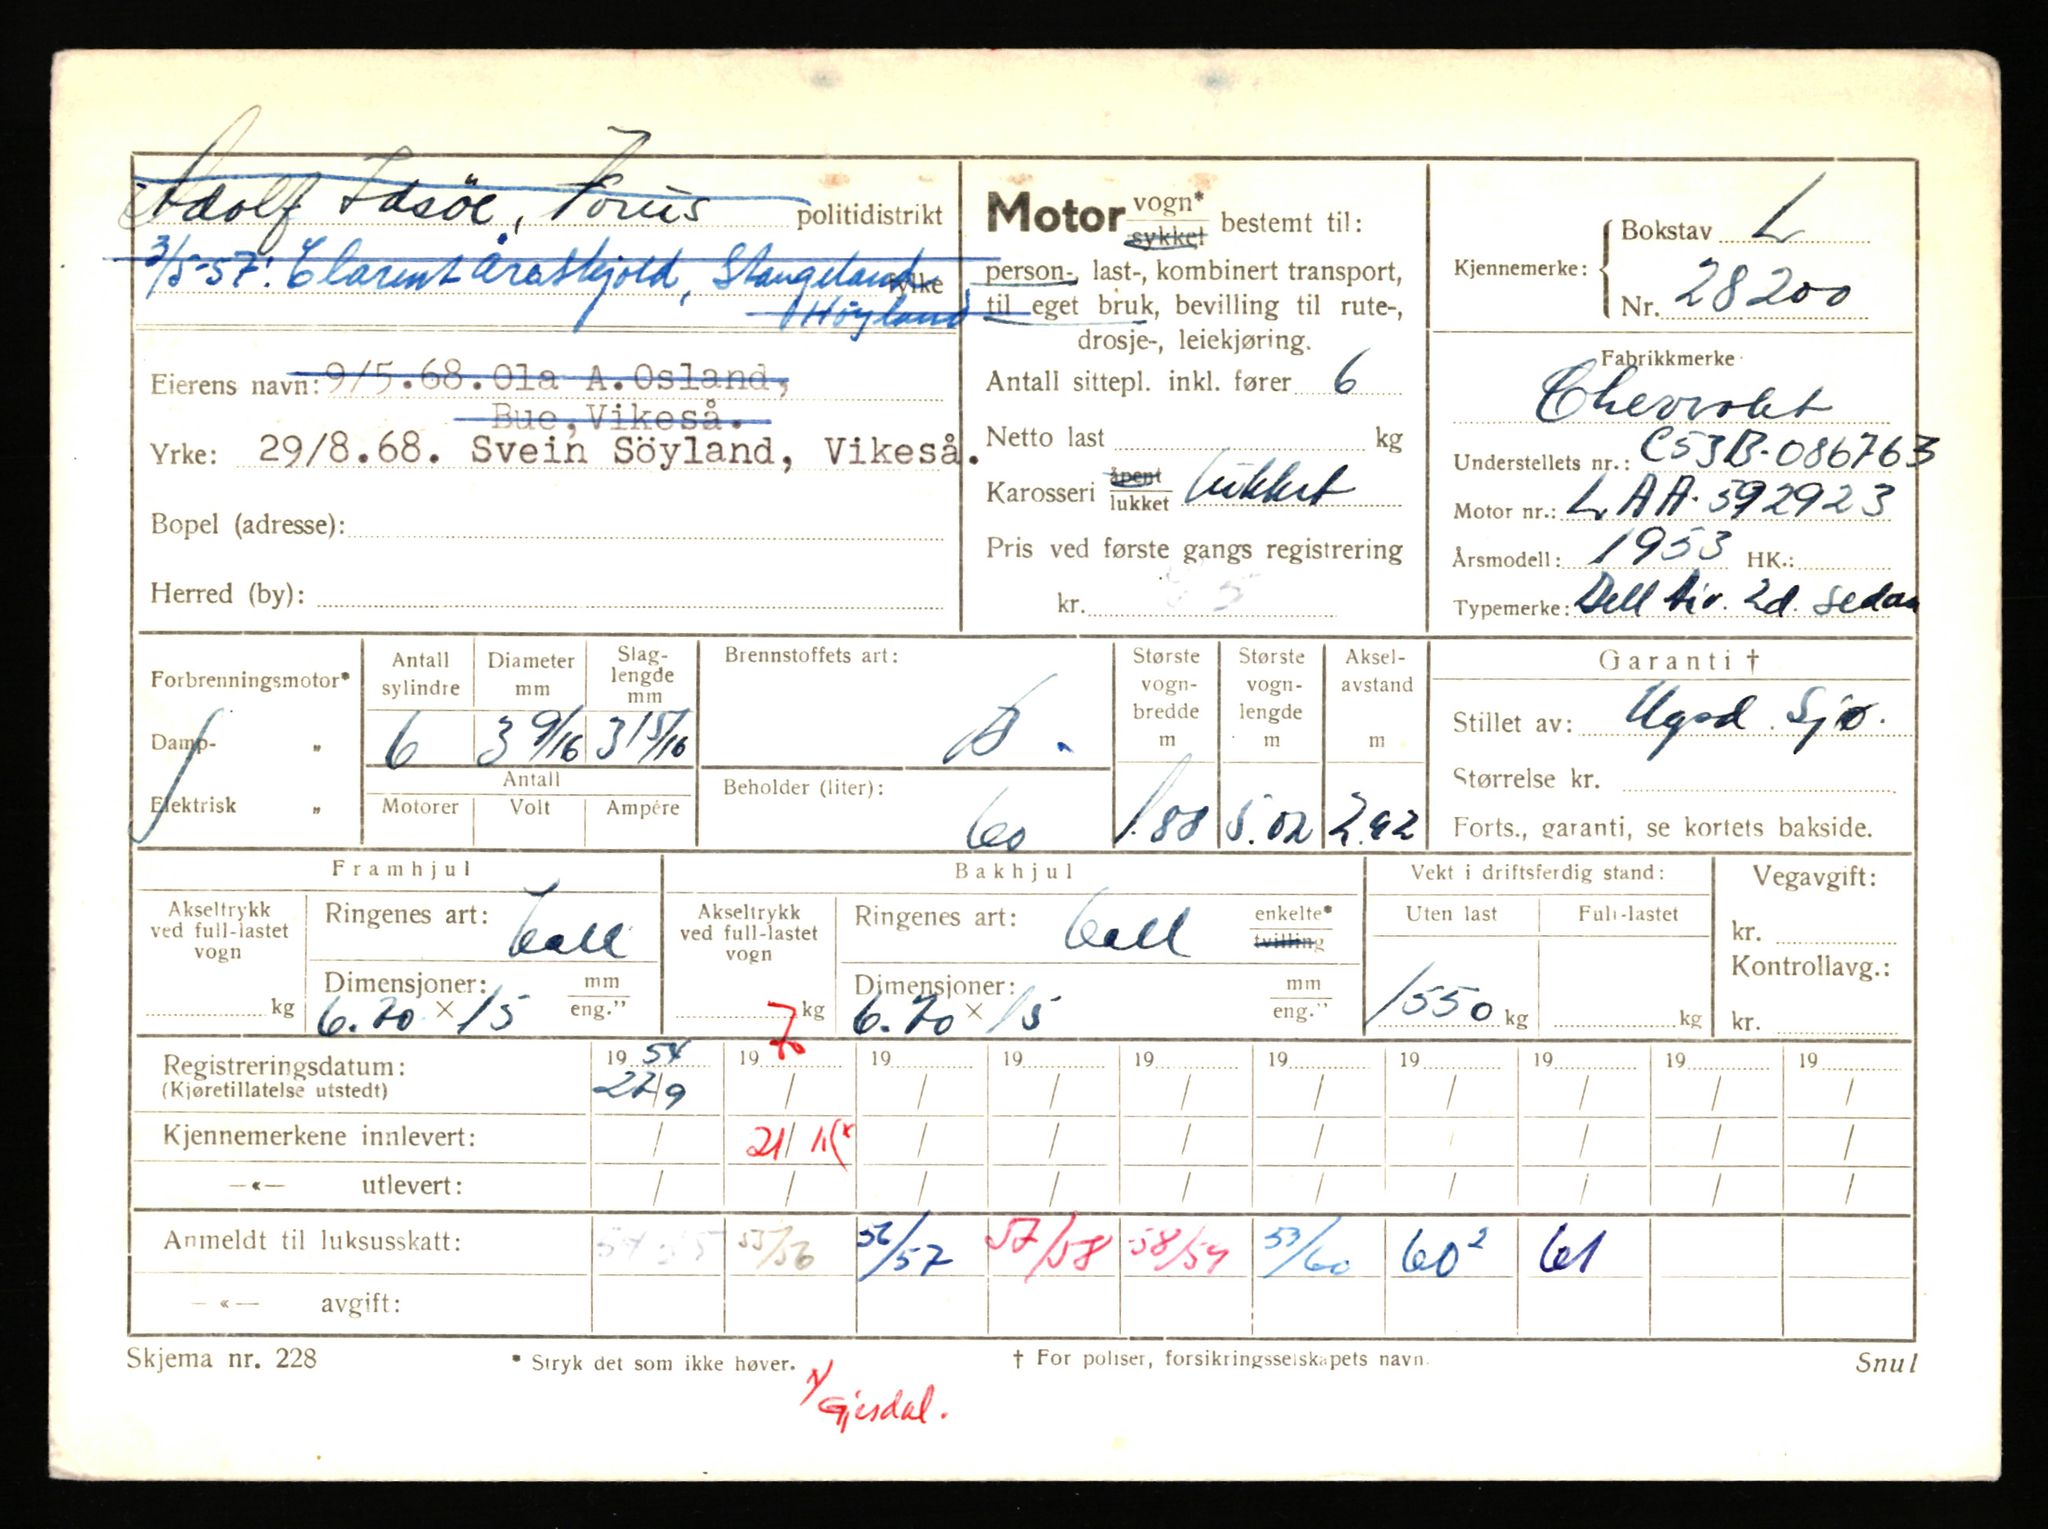 Adolf Idsöe, Forus politidistrikt
3/5-57: Clarent Åreskjold, Stangeland fylke
Höyland
Eierens navn: 9/5.68. Ola A. Osland,
Bue, Vikeså.
Yrke: 29/8.68. Svein Söyland, Vikeså.
Bopel (adresse):
Herred (by):
Motor vogn* sykkel bestemt til:
person-, last-, kombinert transport,
til eget bruk, bevilling til rute-,
drosje-, leiekjøring.
Antall sittepl. inkl. fører 6
Netto last kg
Karosseri åpent lukket lukket
Pris ved første gangs registrering
kr.
Kjennemerke: Bokstav L
Nr. 28200
Fabrikkmerke
Chevrolet
Understellets nr.: C53B-086763
Motor nr.: LAA-592923
Årsmodell: 1953 HK.:
Typemerke: Dell Air. 2d. sedan
Forbrenningsmotor*
Damp- "
Elektrisk "
Antall sylindre 6
Diameter mm 3 9/16
Slaglengde mm 3 15/16
Antall
Motorer Volt Ampére
Brennstoffets art: B
Beholder (liter): 60
Største vognbredde m 1.88
Største vognlengde m 5.02
Akselavstand m 2.92
Garanti †
Stillet av: Ugsd. Sjø.
Størrelse kr.
Forts., garanti, se kortets bakside.
Framhjul
Akseltrykk ved full-lastet vogn kg
Ringenes art:
Dimensjoner: 6.70 × 15 mm eng."
Bakhjul
Akseltrykk ved full-lastet vogn kg
Ringenes art: enkelte* tvilling
Dimensjoner: 6.70 × 15 mm eng."
Vekt i driftsferdig stand:
Uten last 1550 kg
Full-lastet kg
Vegavgift:
kr.
Kontrollavg.:
kr.
Registreringsdatum: 19 54 19 70 19 19 19 19 19 19 19 19
(Kjøretillatelse utstedt) 27/9 / / / / / / / / /
Kjennemerkene innlevert: / 21/ / / / / / / / /
—«— utlevert: / / / / / / / / / /
Anmeldt til luksusskatt: 54 55 55/56 56/57 57/58 58/59 59/60 60² 61
—«— avgift:
Skjema nr. 228 * Stryk det som ikke høver. † For poliser, forsikringsselskapets navn. Snul
Gjesdal.